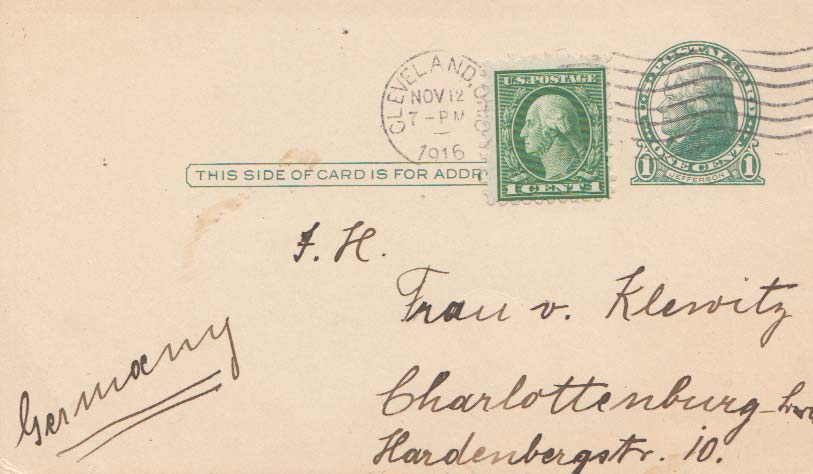 CLEVELAND, OHIO
NOV 12
7-PM
1916
U.S. POSTAGE
1 CENT 1
U.S. POSTAL CARD
ONE CENT
1 JEFFERSON 1
THIS SIDE OF CARD IS FOR ADDR
I. H.
Frau v. Klewitz
Germany
Charlottenburg-
Hardenbergstr. 10.